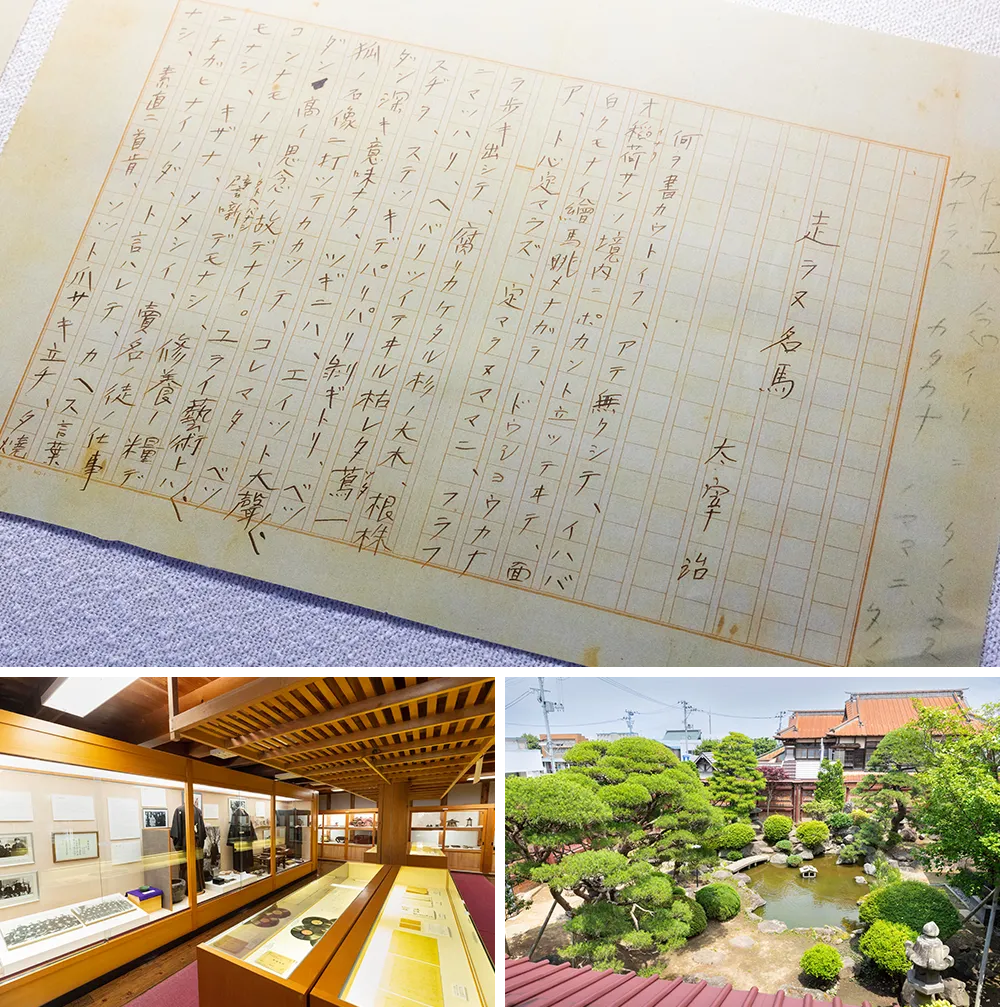 カナラズ カタカナ ノママニ、タノ
走ラヌ名馬
太宰治
何ヲ書カウトイフ、アテ無クシテ、イハバ
オ稲荷サンノ境内ニポカント立ツテヰテ、面
白クモナイ繪馬眺メナガラ、ドウシヨウカナ
ア、ト心定マラズ、定マラヌママニ、フラフ
ラ歩キ出シテ、腐リカケタル杉ノ大木、根株
ニマツハリ、ヘバリツイテヰル枯レタ蔦一
スヂヲ、ステツキデパリパリ剥ギトリ、ベツ
ダン深キ意味ナク、ツギニハ、エイツト大聲、
狐ノ石像ニ打ツテカカツテ、コレマタ、ベツ
ダン高イ思念ノ故デナイ。ユライ藝術トハ、
コンナモノサ、譬噺デモナシ、修養ノ糧デ
モナシ、キザナ、メメシイ、賣名ノ徒ノ仕事
ニチガヒナイノダ、ト言ハレテ、カヘス言葉
ナシ、素直ニ首肯、ソツト爪サキ立チ、夕燒